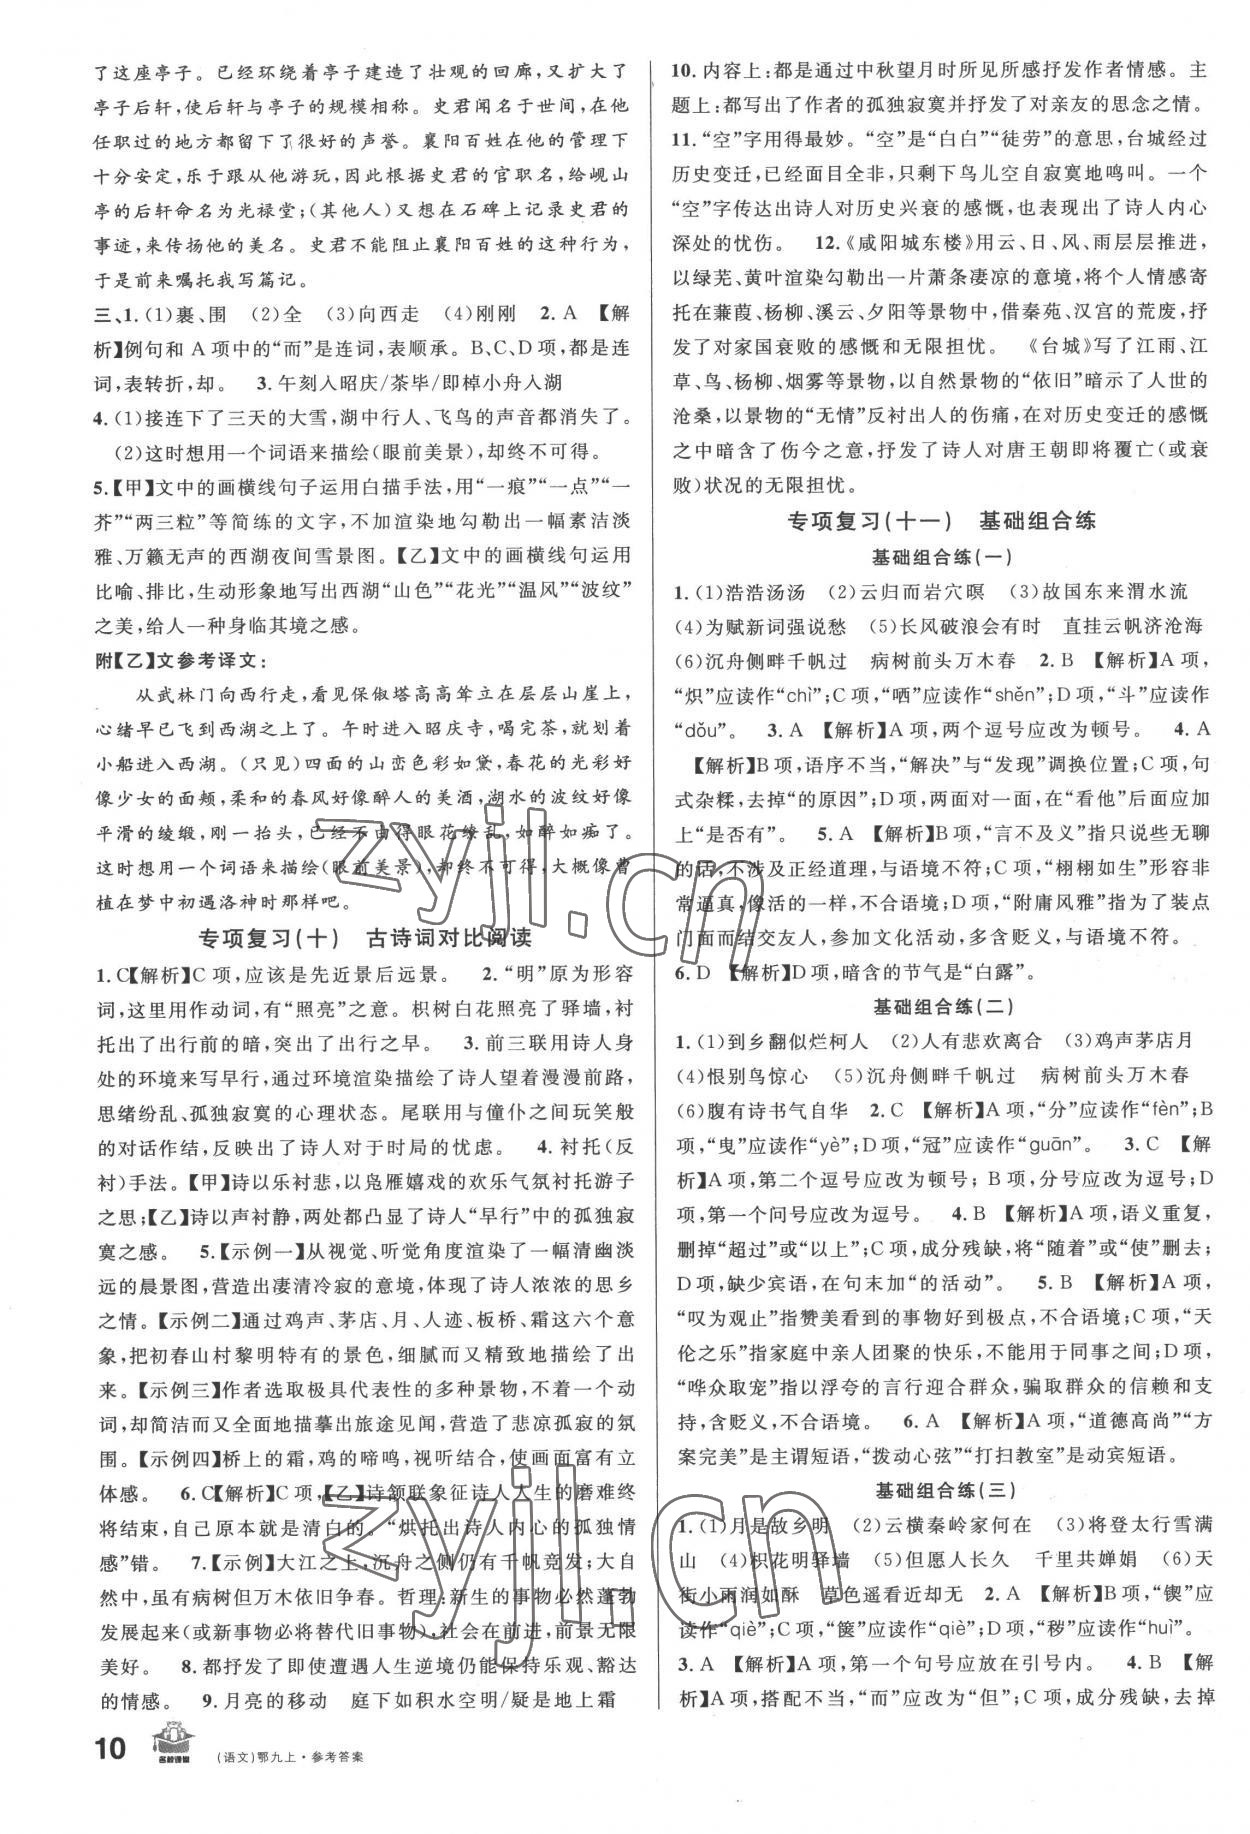 了这座亭子。已经环绕着亭子建造了壮观的回廊,又扩大了
亭子后轩,使后轩与亭子的规模相称。史君闻名于世间,在他
任职过的地方都留下了很好的声誉。襄阳百姓在他的管理下
十分安定,乐于跟从他游玩,因此根据史君的官职名,给岘山
亭的后轩命名为光禄堂;(其他人)又想在石碑上记录史君的
事迹,来传扬他的美名。史君不能阻止襄阳百姓的这种行为,
于是前来嘱托我写篇记。
三、1.(1)裹、围 (2)全 (3)向西走 (4)刚刚 2. A 【解
析】例句和 A 项中的“而”是连词,表顺承。B、C、D 项,都是连
词,表转折,却。 3. 午刻入昭庆/茶毕/即棹小舟入湖
4.(1)接连下了三天的大雪,湖中行人、飞鸟的声音都消失了。
(2)这时想用一个词语来描绘(眼前美景),却终不可得。
5.【甲】文中的画横线句子运用白描手法,用“一痕”“一点”“一
芥”“两三粒”等简练的文字,不加渲染地勾勒出一幅素洁淡
雅、万籁无声的西湖夜间雪景图。【乙】文中的画横线句运用
比喻、排比,生动形象地写出西湖“山色”“花光”“温风”“波纹”
之美,给人一种身临其境之感。
附【乙】文参考译文:
从武林门向西行走,看见保俶塔高高耸立在层层山崖上,
心绪早已飞到西湖之上了。午时进入昭庆寺,喝完茶,就划着
小船进入西湖。(只见)四面的山峦色彩如黛,春花的光彩好
像少女的面颊,柔和的春风好像醉人的美酒,湖水的波纹好像
平滑的绫缎,刚一抬头,已经不由得眼花缭乱,如醉如痴了。
这时想用一个词语来描绘(眼前美景),却终不可得,大概像曹
植在梦中初遇洛神时那样吧。
专项复习(十) 古诗词对比阅读
1. C【解析】C 项,应该是先近景后远景。 2. “明”原为形容
词,这里用作动词,有“照亮”之意。枳树白花照亮了驿墙,衬
托出了出行前的暗,突出了出行之早。 3. 前三联用诗人身
处的环境来写早行,通过环境渲染描绘了诗人望着漫漫前路,
思绪纷乱、孤独寂寞的心理状态。尾联用与僮仆之间玩笑般
的对话作结,反映出了诗人对于时局的忧虑。 4. 衬托(反
衬)手法。【甲】诗以乐衬悲,以凫雁嬉戏的欢乐气氛衬托游子
之思;【乙】诗以声衬静,两处都凸显了诗人“早行”中的孤独寂
寞之感。 5.【示例一】从视觉、听觉角度渲染了一幅清幽淡
远的晨景图,营造出凄清冷寂的意境,体现了诗人浓浓的思乡
之情。【示例二】通过鸡声、茅店、月、人迹、板桥、霜这六个意
象,把初春山村黎明特有的景色,细腻而又精致地描绘了出
来。【示例三】作者选取极具代表性的多种景物,不着一个动
词,却简洁而又全面地描摹出旅途见闻,营造了悲凉孤寂的氛
围。【示例四】桥上的霜,鸡的啼鸣,视听结合,使画面富有立
体感。 6. C【解析】C 项,【乙】诗颔联象征诗人人生的磨难终
将结束,自己原本就是清白的。“烘托出诗人内心的孤独情
感”错。 7.【示例】大江之上,沉舟之侧仍有千帆竞发;大自
然中,虽有病树但万木依旧争春。哲理:新生的事物必然蓬勃
发展起来(或新事物必将替代旧事物),社会在前进,前景无限
美好。 8. 都抒发了即使遭遇人生逆境仍能保持乐观、豁达
的情感。 9. 月亮的移动 庭下如积水空明/疑是地上霜
10. 内容上:都是通过中秋望月时所见所感抒发作者情感。主
题上:都写出了作者的孤独寂寞并抒发了对亲友的思念之情。
11. “空”字用得最妙。“空”是“白白”“徒劳”的意思,台城经过
历史变迁,已经面目全非,只剩下鸟儿空自寂寞地鸣叫。一个
“空”字传达出诗人对历史兴衰的感慨,也表现出了诗人内心
深处的忧伤。 12.《咸阳城东楼》用云、日、风、雨层层推进,
以绿芜、黄叶渲染勾勒出一片萧条凄凉的意境,将个人情感寄
托在蒹葭、杨柳、溪云、夕阳等景物中,借秦苑、汉宫的荒废,抒
发了对家国衰败的感慨和无限担忧。 《台城》写了江雨、江
草、鸟、杨柳、烟雾等景物,以自然景物的“依旧”暗示了人世的
沧桑,以景物的“无情”反衬出人的伤痛,在对历史变迁的感慨
之中暗含了伤今之意,抒发了诗人对唐王朝即将覆亡(或衰
败)状况的无限担忧。
专项复习(十一) 基础组合练
基础组合练(一)
1.(1)浩浩汤汤 (2)云归而岩穴暝 (3)故国东来渭水流
(4)为赋新词强说愁 (5)长风破浪会有时 直挂云帆济沧海
(6)沉舟侧畔千帆过 病树前头万木春 2. B 【解析】A 项,
“炽”应读作“chì”;C 项,“哂”应读作“shěn”;D 项,“斗”应读作
“dǒu”。 3. A 【解析】A 项,两个逗号应改为顿号。 4. A
【解析】B 项,语序不当,“解决”与“发现”调换位置;C 项,句
式杂糅,去掉“的原因”;D 项,两面对一面,在“看他”后面应加
上“是否有”。 5. A 【解析】B 项,“言不及义”指只说些无聊
的话,不涉及正经道理,与语境不符;C 项,“栩栩如生”形容非
常逼真,像活的一样,不合语境;D 项,“附庸风雅”指为了装点
门面而结交友人,参加文化活动,多含贬义,与语境不符。
6. D 【解析】D 项,暗含的节气是“白露”。
基础组合练(二)
1.(1)到乡翻似烂柯人 (2)人有悲欢离合 (3)鸡声茅店月
(4)恨别鸟惊心 (5)沉舟侧畔千帆过 病树前头万木春
(6)腹有诗书气自华 2. C 【解析】A 项,“分”应读作“fèn”;B
项,“曳”应读作“yè”;D 项,“冠”应读作“guān”。 3. C 【解
析】A 项,第二个逗号应改为顿号; B 项,分号应改为逗号;D
项,第一个问号应改为逗号。 4. B 【解析】A 项,语义重复,
删掉“超过”或“以上”;C 项,成分残缺,将“随着”或“使”删去;
D 项,缺少宾语,在句末加“的活动”。 5. B 【解析】A 项,
“叹为观止”指赞美看到的事物好到极点,不合语境;C 项,“天
伦之乐”指家庭中亲人团聚的快乐,不能用于同事之间;D 项,
“哗众取宠”指以浮夸的言行迎合群众,骗取群众的信赖和支
持,含贬义,不合语境。 6. A 【解析】A 项,“道德高尚”“方
案完美”是主谓短语,“拨动心弦”“打扫教室”是动宾短语。
基础组合练(三)
1.(1)月是故乡明 (2)云横秦岭家何在 (3)将登太行雪满
山 (4)枳花明驿墙 (5)但愿人长久 千里共婵娟 (6)天
街小雨润如酥 草色遥看近却无 2. A 【解析】B 项,“锲”应
读作“qiè”;C 项,“箧”应读作“qiè”;D 项,“秽”应读作“huì”。
3. A 【解析】A 项,第一个句号应放在引号内。 4. B 【解
析】A 项,搭配不当,“而”应改为“但”;C 项,成分残缺,去掉
10 名校课堂 (语文)鄂九上·参考答案
zyjl.cn
zyjl.cn